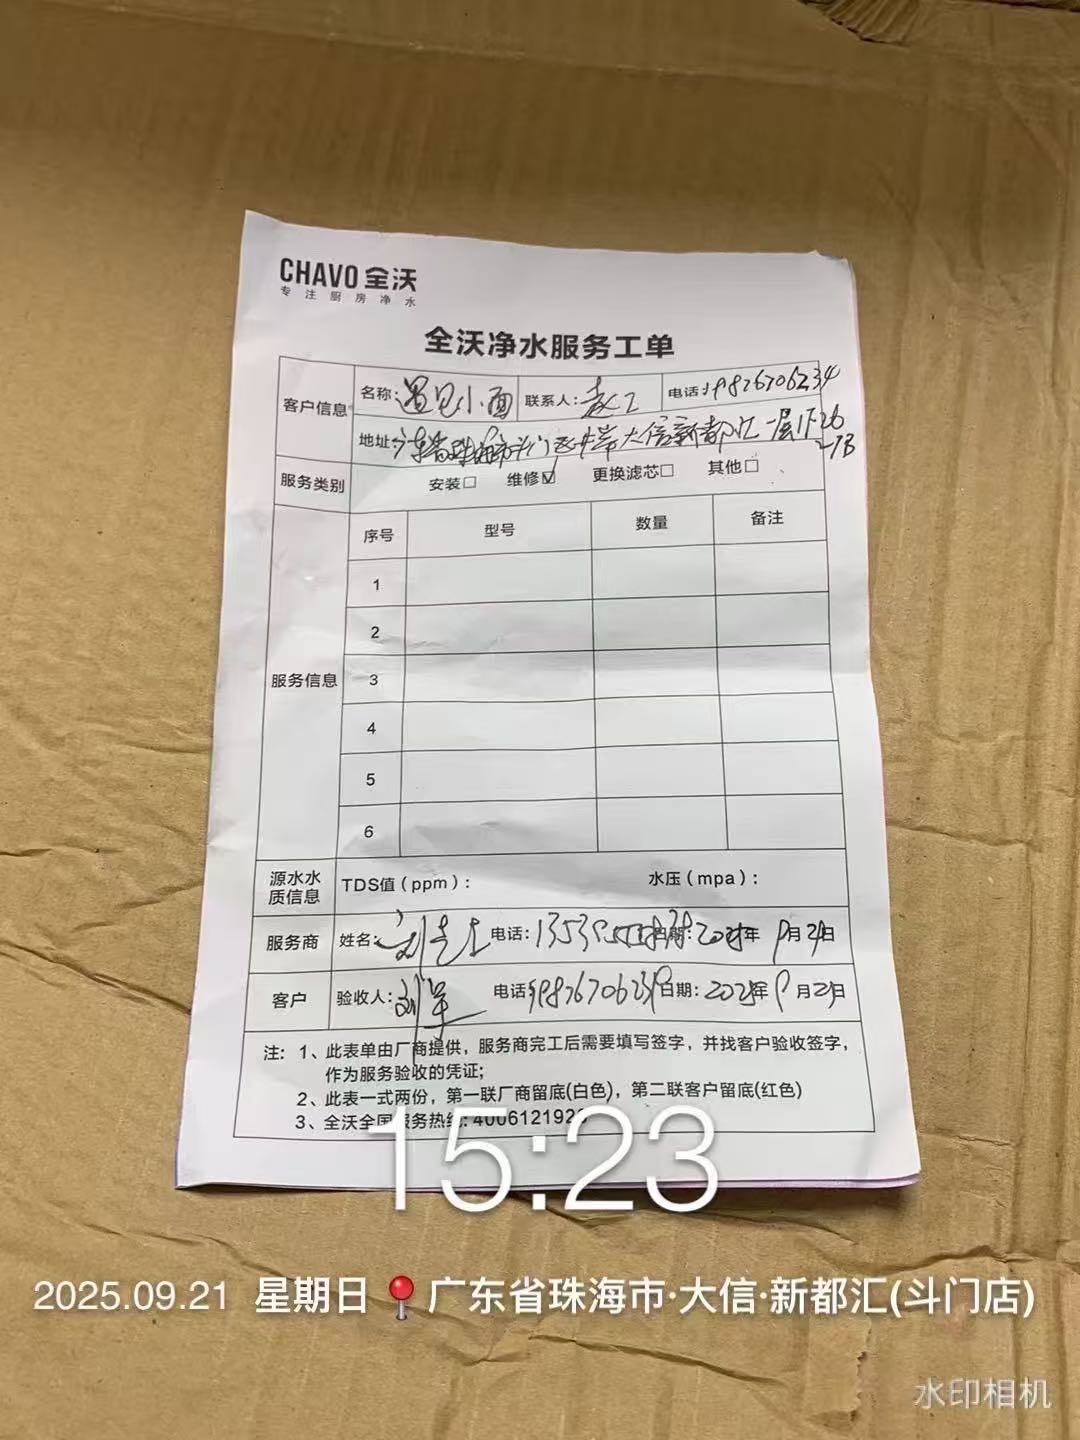 CHAVO 全沃
专注厨房净水
全沃净水服务工单
客户信息
名称: 遇见小面 联系人: 袁工 电话: 19876706234
地址: 广东省珠海市斗门区井岸大信新都汇一层1F-26
-7B
服务类别 安装□ 维修☑ 更换滤芯□ 其他□
服务信息
序号 型号 数量 备注
1
2
3
4
5
6
源水水质信息 TDS值(ppm): 水压(mpa):
服务商 姓名: 刘 电话: 日期: 2025年9月21日
客户 验收人: 刘 电话: 日期: 2025年9月21日
注: 1、此表单由厂商提供，服务商完工后需要填写签字，并找客户验收签字，
作为服务验收的凭证；
2、此表一式两份，第一联厂商留底(白色)，第二联客户留底(红色)
3、全沃全国服务热线:
15:23
2025.09.21 星期日 广东省珠海市·大信·新都汇(斗门店)
水印相机